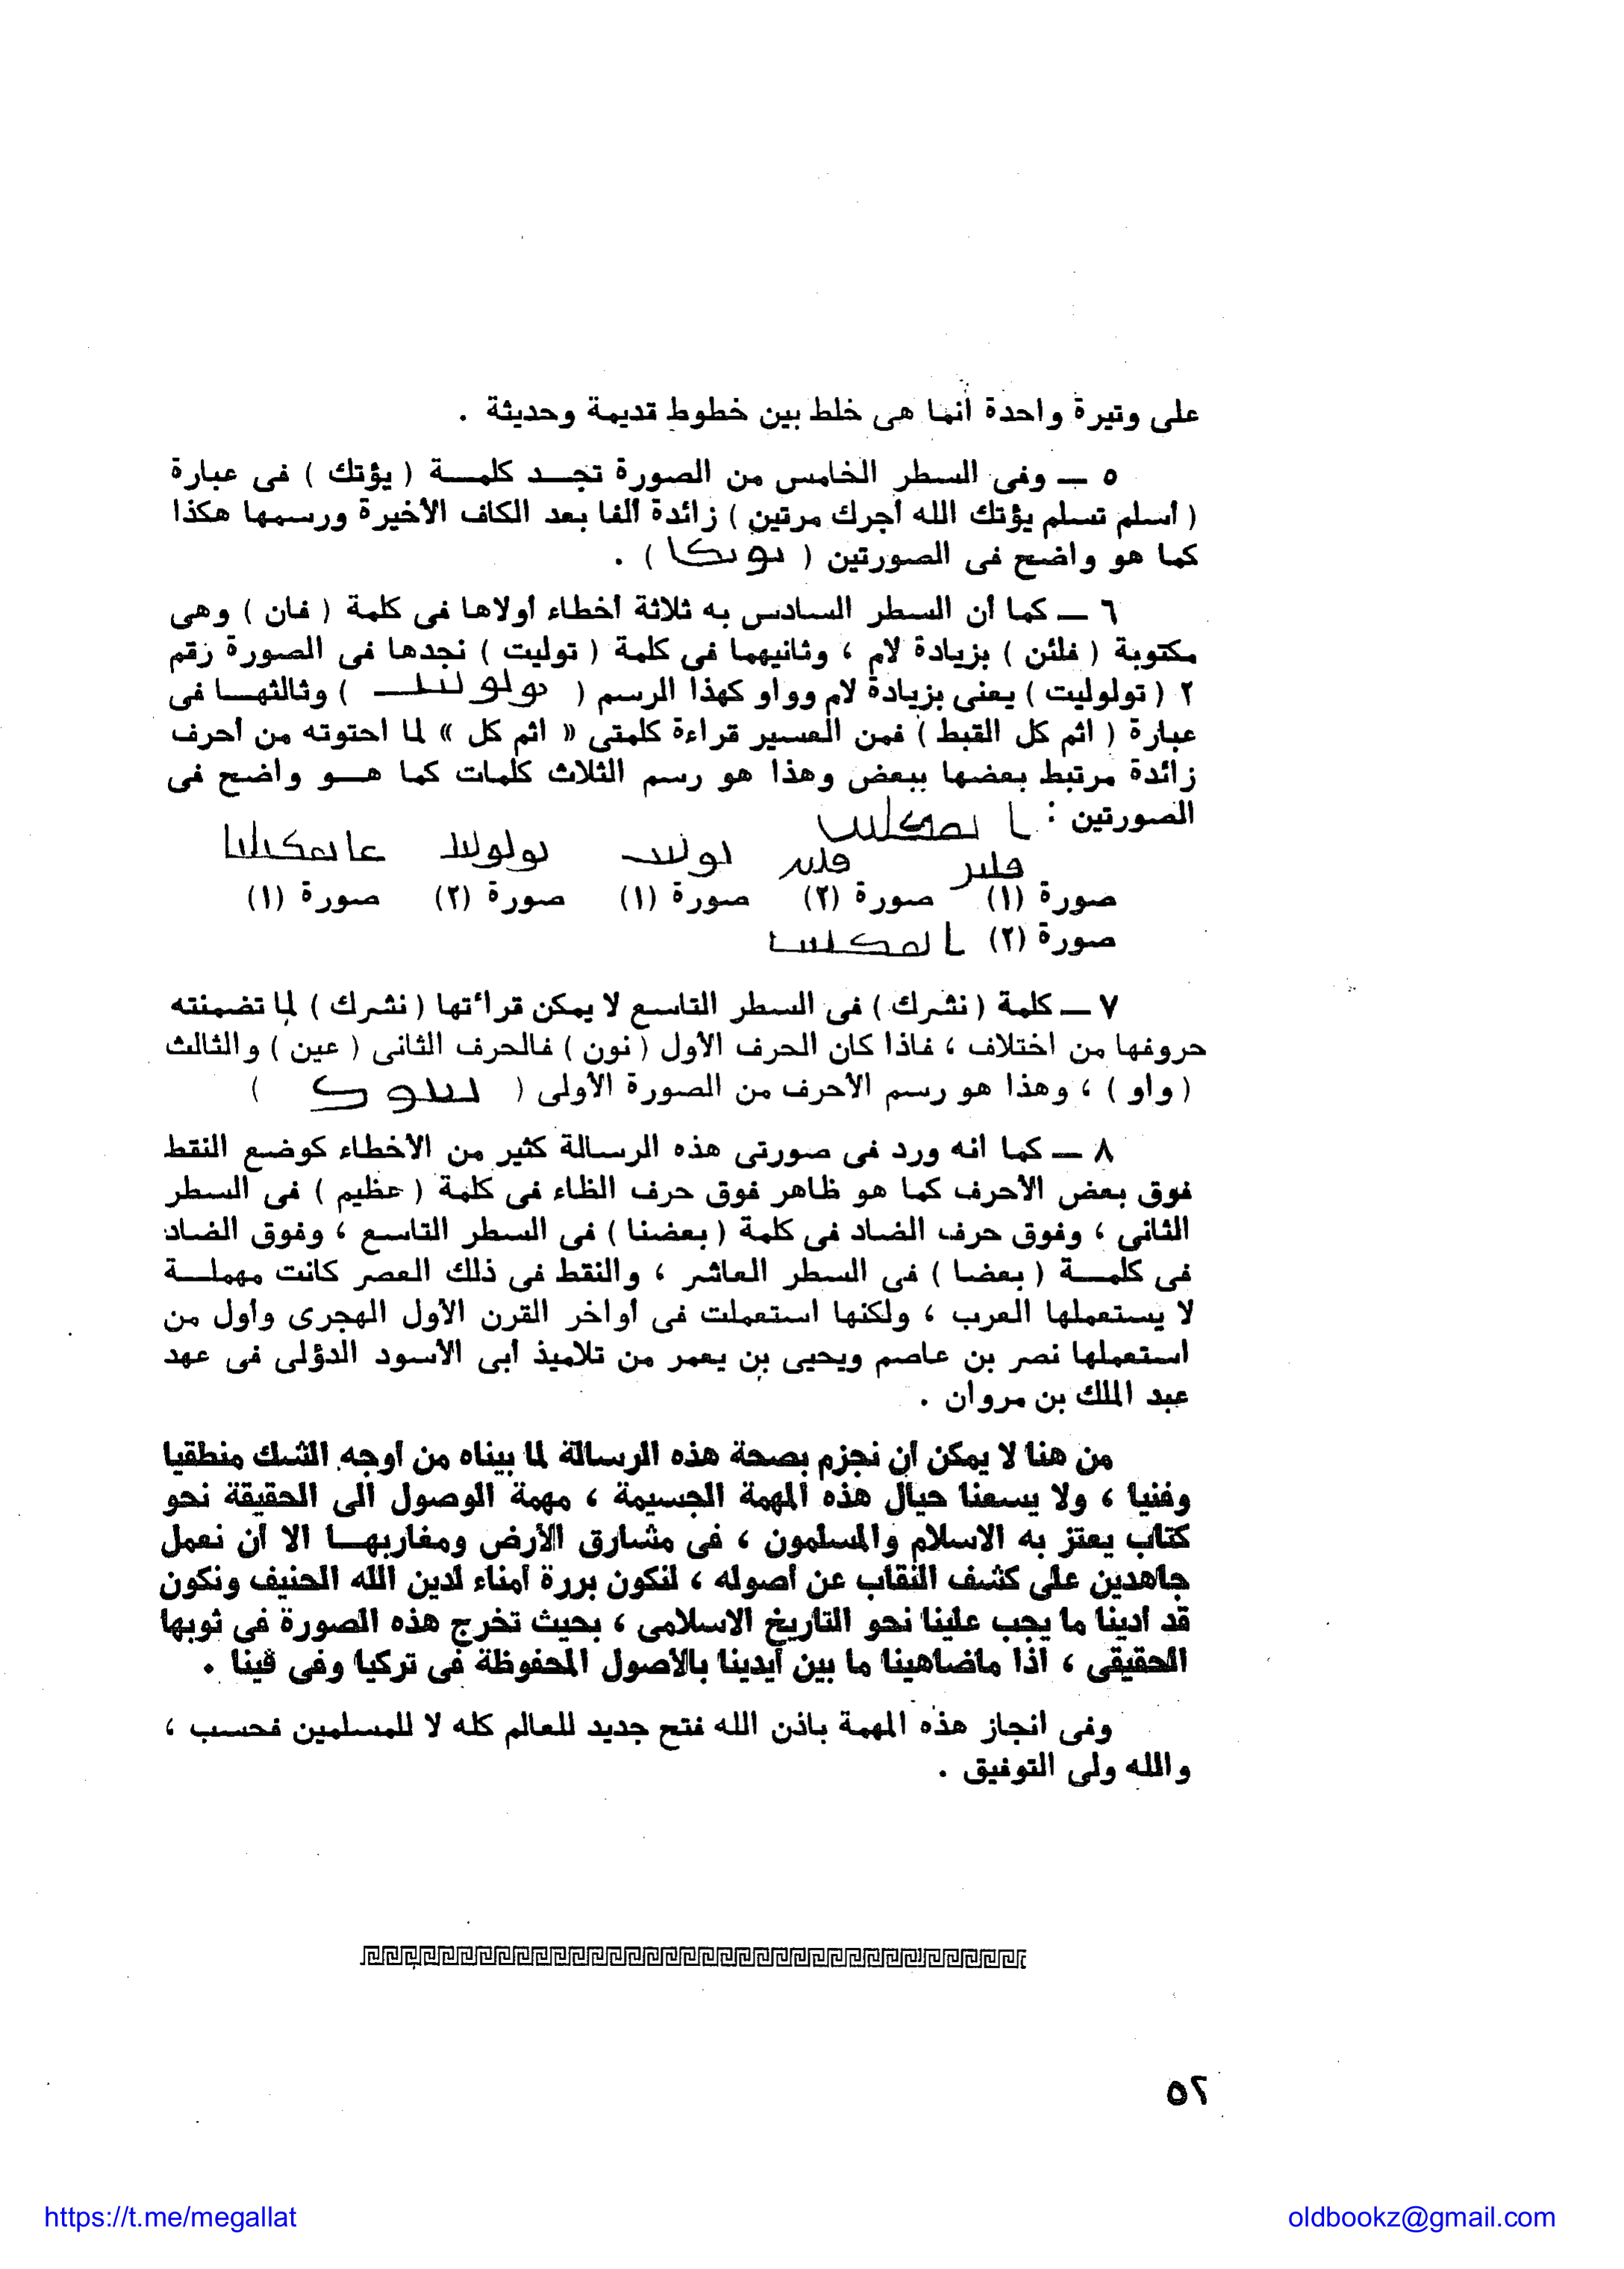 على وتيرة واحدة انما هى خلط بين خطوط قديمة وحديثة .
٥ — وفى السطر الخامس من الصورة تجد كلمة ( يؤتك ) فى عبارة
( أسلم تسلم يؤتك الله أجرك مرتين ) زائدة ألفا بعد الكاف الأخيرة ورسمها هكذا
كما هو واضح فى الصورتين ( ) .
٦ — كما أن السطر السادس به ثلاثة أخطاء أولاها فى كلمة ( فان ) وهى
مكتوبة ( فلئن ) بزيادة لام ، وثانيهما فى كلمة ( توليت ) نجدها فى الصورة رقم
٢ ( تولوليت ) يعنى بزيادة لام وواو كهذا الرسم ( ) وثالثها فى
عبارة ( اثم كل القبط ) فمن العسير قراءة كلمتى « اثم كل » لما احتوته من أحرف
زائدة مرتبط بعضها ببعض وهذا هو رسم الثلاث كلمات كما هو واضح فى
الصورتين :
صورة (١) صورة (٢) صورة (١) صورة (٢) صورة (١)
صورة (٢)
٧ — كلمة ( نشرك ) فى السطر التاسع لا يمكن قرائتها ( نشرك ) لما تضمنته
حروفها من اختلاف ، فاذا كان الحرف الأول ( نون ) فالحرف الثانى ( عين ) والثالث
( واو ) ، وهذا هو رسم الأحرف من الصورة الأولى ( )
٨ — كما انه ورد فى صورتى هذه الرسالة كثير من الأخطاء كوضع النقط
فوق بعض الأحرف كما هو ظاهر فوق حرف الظاء فى كلمة ( عظيم ) فى السطر
الثانى ، وفوق حرف الضاد فى كلمة ( بعضنا ) فى السطر التاسع ، وفوق الضاد
فى كلمة ( بعضا ) فى السطر العاشر ، والنقط فى ذلك العصر كانت مهملة
لا يستعملها العرب ، ولكنها استعملت فى أواخر القرن الأول الهجرى وأول من
استعملها نصر بن عاصم ويحيى بن يعمر من تلاميذ أبى الأسود الدؤلى فى عهد
عبد الملك بن مروان .
من هنا لا يمكن أن نجزم بصحة هذه الرسالة لما بيناه من أوجه الشك منطقيا
وفنيا ، ولا يسعنا حيال هذه المهمة الجسيمة ، مهمة الوصول الى الحقيقة نحو
كتاب يعتز به الاسلام والمسلمون ، فى مشارق الأرض ومغاربها الا أن نعمل
جاهدين على كشف النقاب عن أصوله ، لنكون بررة أمناء لدين الله الحنيف ونكون
قد أدينا ما يجب علينا نحو التاريخ الاسلامى ، بحيث تخرج هذه الصورة فى ثوبها
الحقيقى ، اذا ماضاهينا ما بين أيدينا بالأصول المحفوظة فى تركيا وفى ڤينا .
وفى انجاز هذه المهمة باذن الله فتح جديد للعالم كله لا للمسلمين فحسب ،
والله ولى التوفيق .
٥٢
https://t.me/megallat
oldbookz@gmail.com